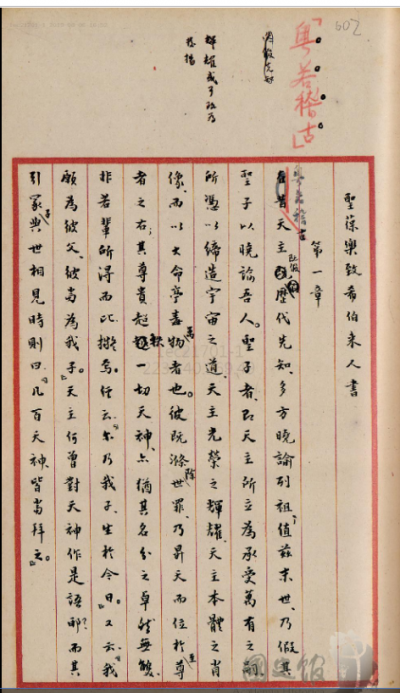 602
「粵若稽古」
因做先知
輝耀或可改為
發揚
聖葆樂致希伯來人書
第一章
在昔天主歷代先知、多方曉諭列祖、值茲末世、乃假其
聖子以曉諭吾人。聖子者、即天主所立為承受萬有之嗣
所憑以締造宇宙之道、天主光榮之輝耀、天主本體之肖
像、而以大命亭毒萬物者也。彼既滌除世罪、乃昇天而位於至尊
者之右；其尊貴超軼一切天神、亦猶其名分之卓然無雙、
非若輩所得而比擬焉。經云：『爾乃我子、生於今日。』又云：『我
願為彼父、彼當為我子。』天主何曾對天神作是語耶？而其
引冢子與世相見時則曰：『凡百天神、皆當拜之。』
國史館